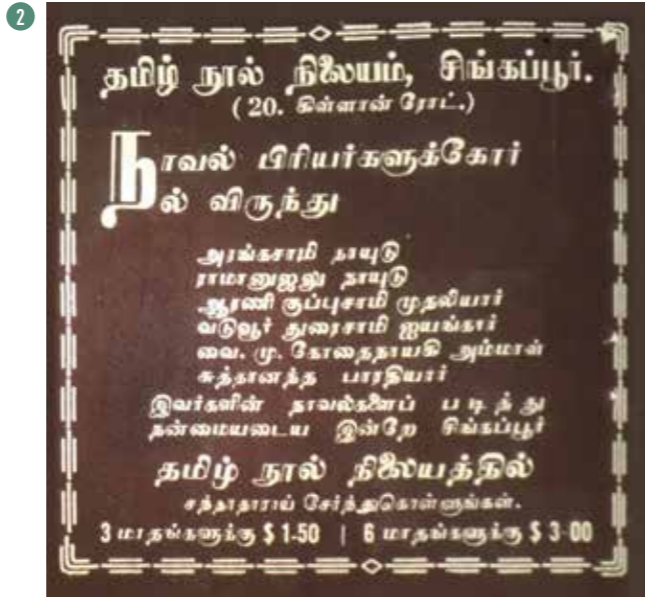 2
தமிழ் நூல் நிலையம், சிங்கப்பூர்.
( 20. கிள்ளான் ரோட்.)
நாவல் பிரியர்களுக்கோர்
நல் விருந்து
அரங்கசாமி நாயுடு
ராமானுஜலு நாயுடு
ஆரணி குப்புசாமி முதலியார்
வடுவூர் துரைசாமி ஐயங்கார்
வை. மு. கோதைநாயகி அம்மாள்
சுத்தானந்த பாரதியார்
இவர்களின் நாவல்களைப் படித்து
நன்மையடைய இன்றே சிங்கப்பூர்
தமிழ் நூல் நிலையத்தில்
சந்தாதாராய் சேர்ந்துகொள்ளுங்கள்.
3 மாதங்களுக்கு $ 1-50 | 6 மாதங்களுக்கு $ 3-00